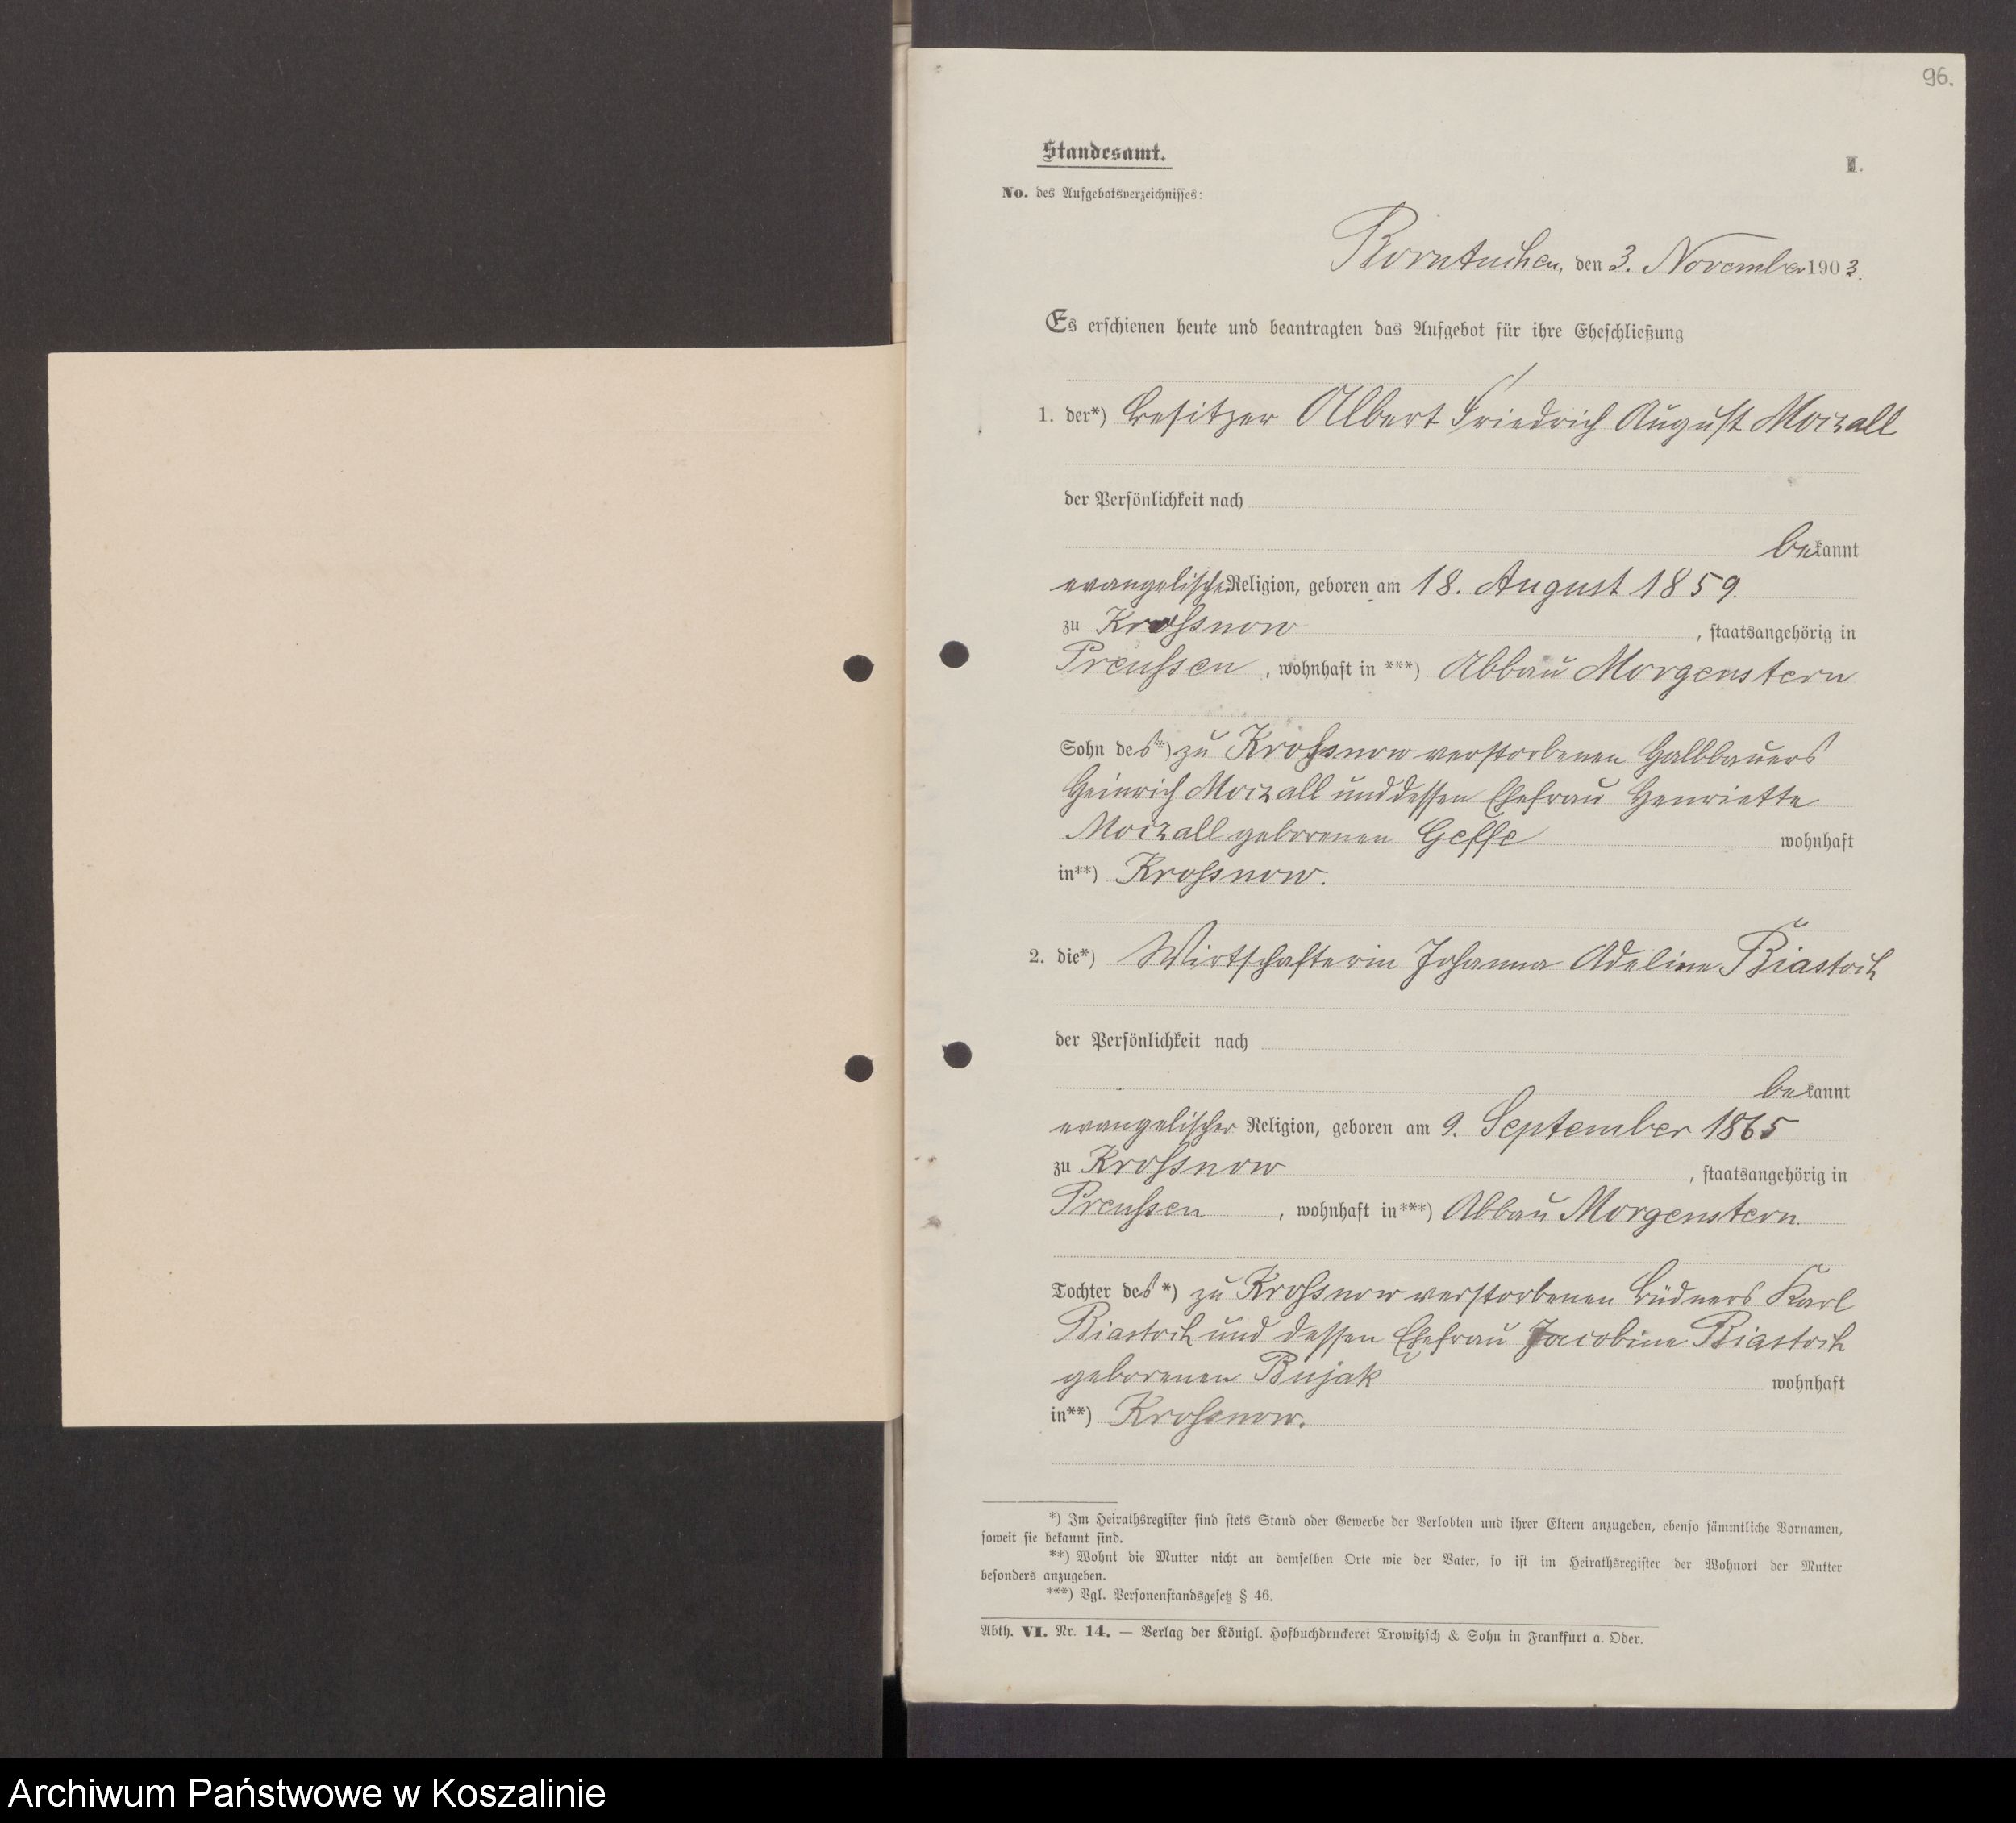 96.
Standesamt.
II.
No. des Aufgebotsverzeichnisses:
Borntuchen, den 3. November 1903.
Es erschienen heute und beantragten das Aufgebot für ihre Eheschließung
1. der*) Besitzer Albert Friedrich August Moizall
der Persönlichkeit nach
bekannt
evangelischer Religion, geboren am 18. August 1859.
zu Krossnow, staatsangehörig in
Preussen, wohnhaft in ***) Abbau Morgenstern
Sohn des*) zu Krossnow verstorbenen Halbbauers
Heinrich Moizall und dessen Ehefrau Henriette
Moizall geborenen wohnhaft
in**) Krossnow.
2. die*) Wirtschafterin Johanna Adeline Biastoch
der Persönlichkeit nach
bekannt
evangelischer Religion, geboren am 9. September 1865
zu Krossnow, staatsangehörig in
Preussen, wohnhaft in***) Abbau Morgenstern.
Tochter des*) zu Krossnow verstorbenen Büdners Karl
Biastoch und dessen Ehefrau Jacobine Biastoch
geborenen Bujak wohnhaft
in**) Krossnow.
*) Im Heirathsregister sind stets Stand oder Gewerbe der Verlobten und ihrer Eltern anzugeben, ebenso sämmtliche Vornamen,
soweit sie bekannt sind.
**) Wohnt die Mutter nicht an demselben Orte wie der Vater, so ist im Heirathsregister der Wohnort der Mutter
besonders anzugeben.
***) Vgl. Personenstandsgesetz § 46.
Abth. VI. Nr. 14. — Verlag der Königl. Hofbuchdruckerei Trowitzsch & Sohn in Frankfurt a. Oder.
Archiwum Państwowe w Koszalinie